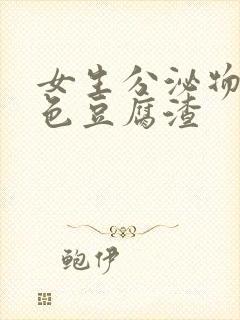 女生分泌物
色豆腐渣
鲍伊